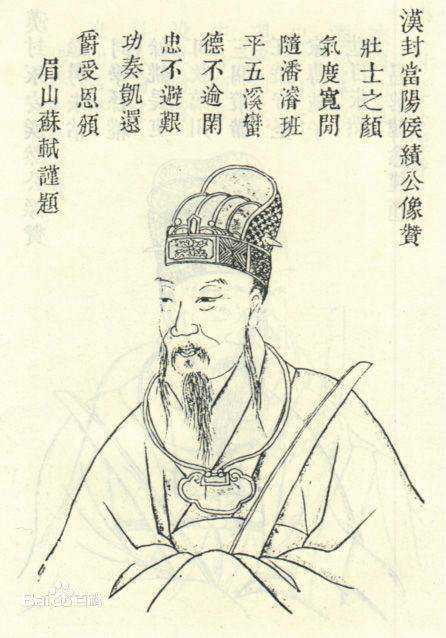 漢封當陽侯績公像贊
壯士之顏
氣度寬閒
隨潘濬班
平五溪蠻
德不逾閑
忠不避艱
功奏凱還
爵受恩頒
眉山蘇軾謹題
Bai百科